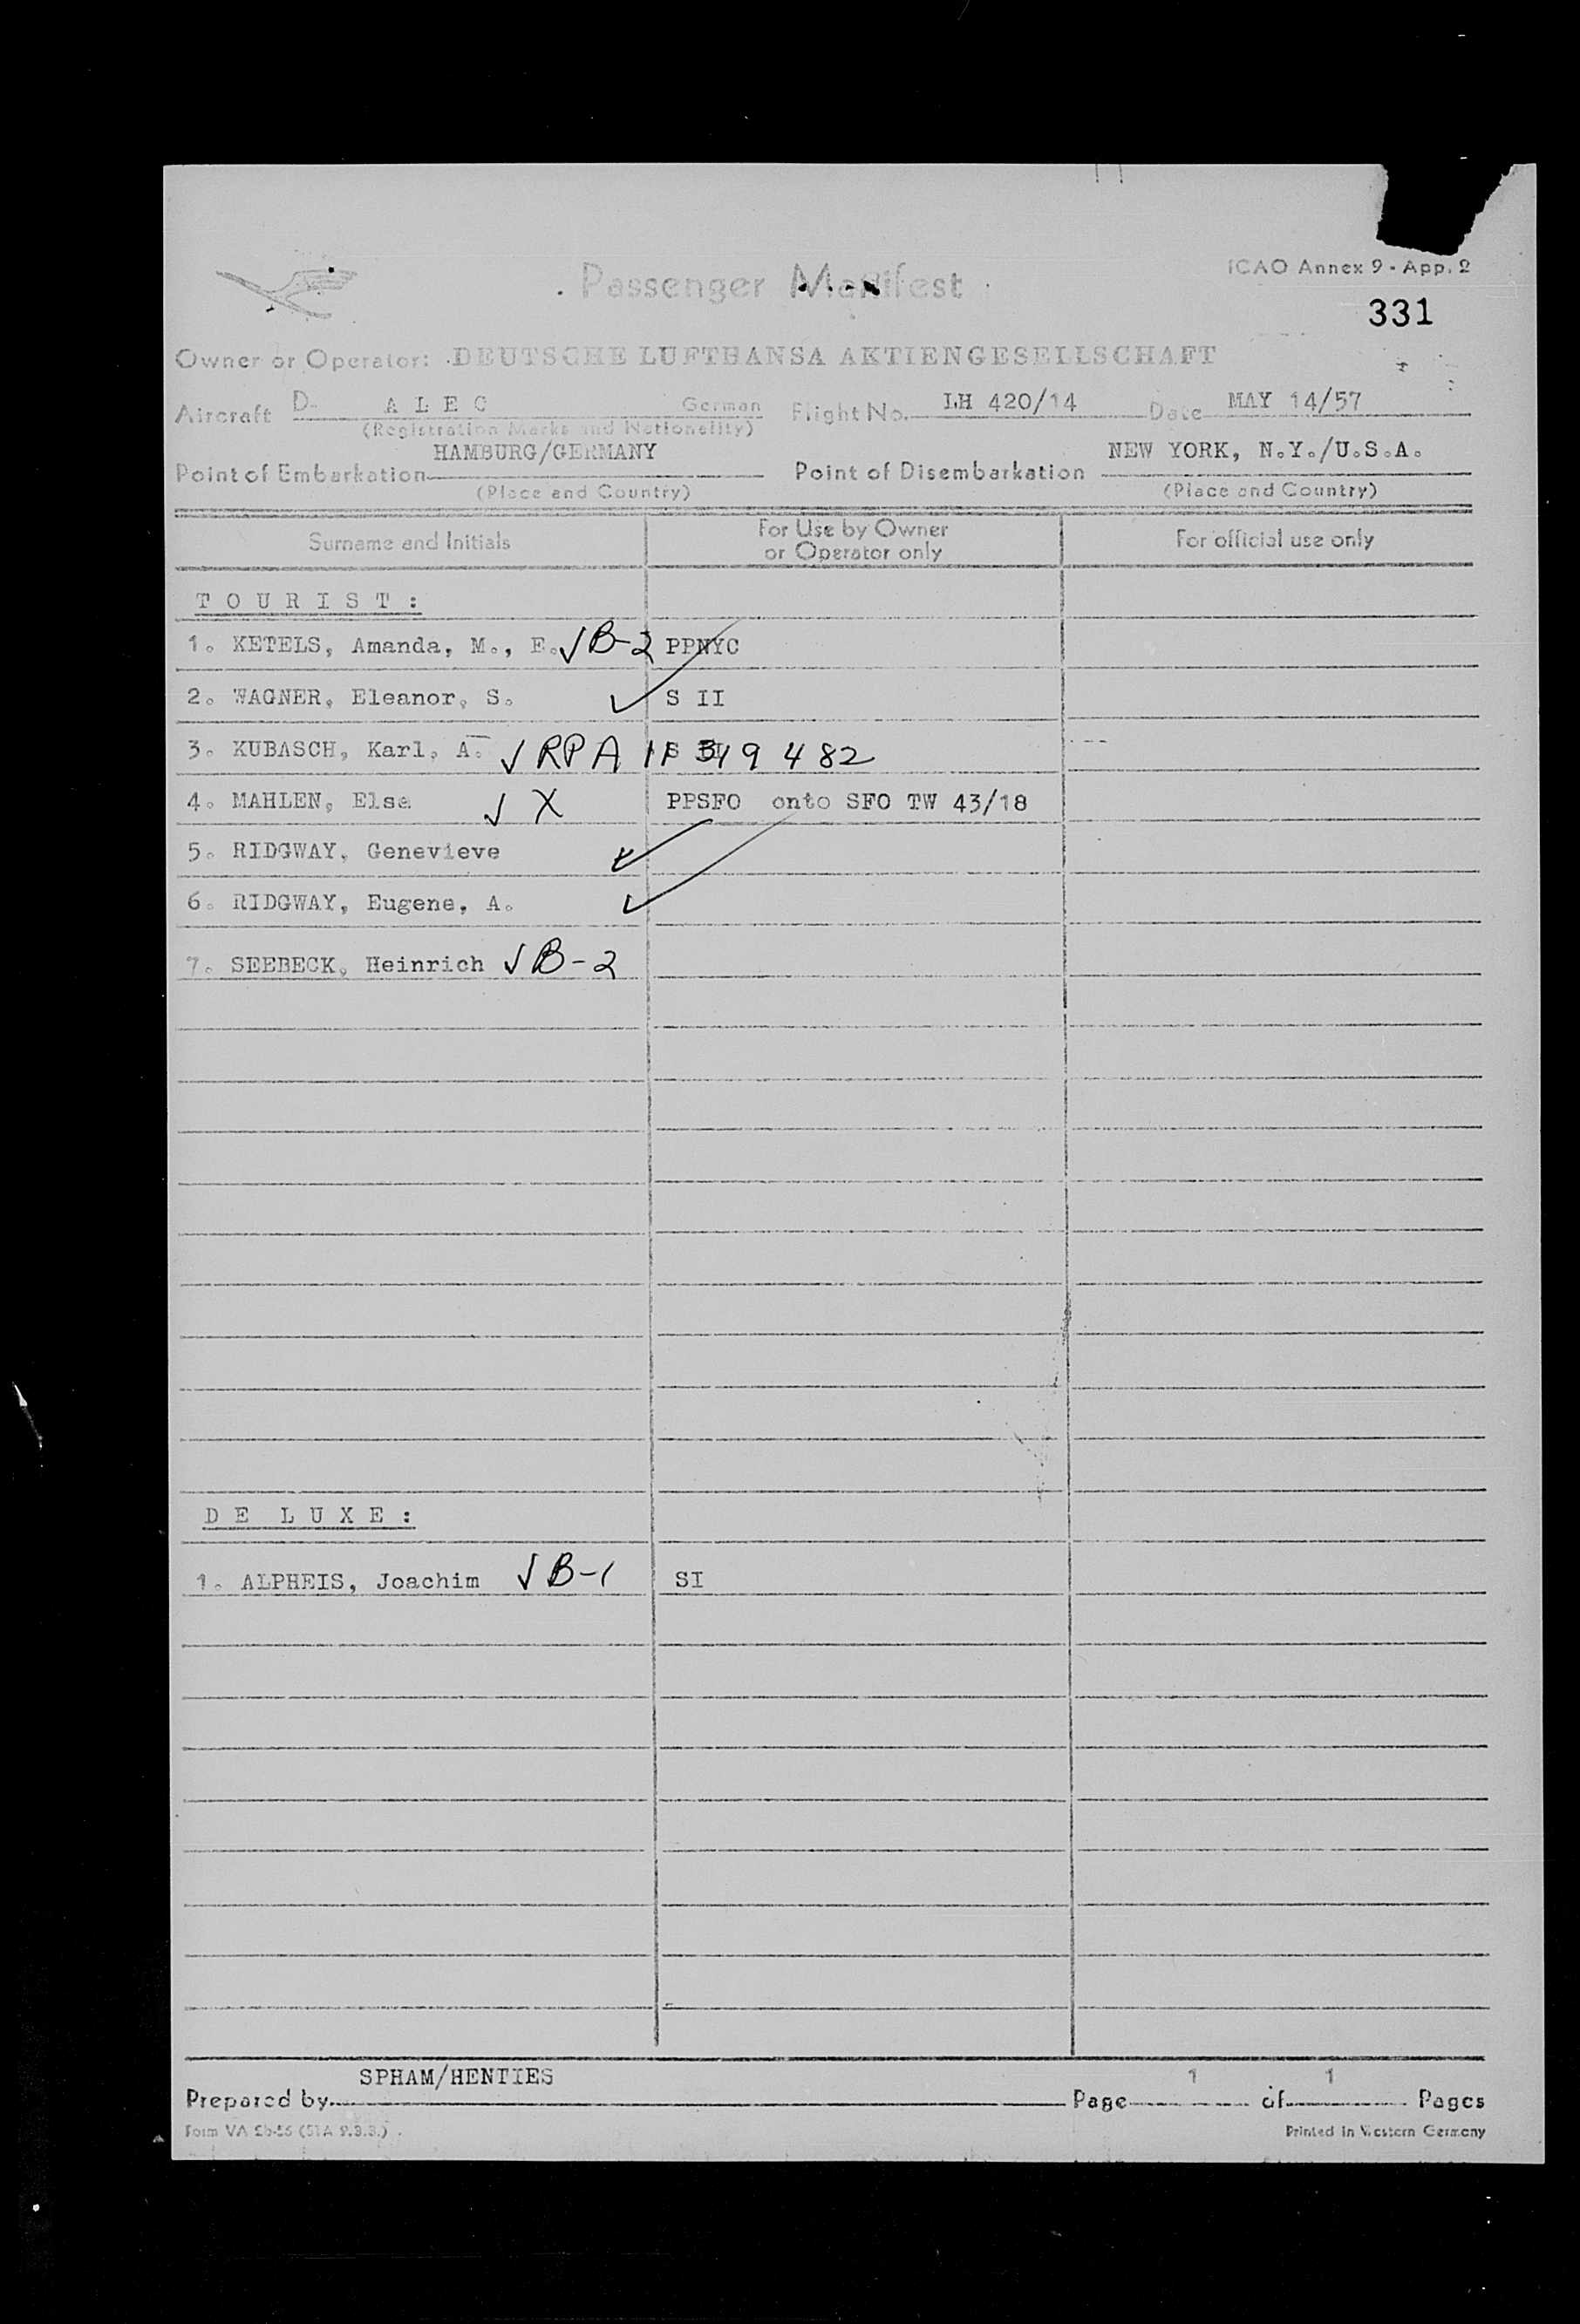 Passenger Manifest
ICAO Annex 9 - App. 2
331
Owner or Operator: DEUTSCHE LUFTHANSA AKTIENGESELLSCHAFT
Aircraft D- A L E C German Flight No. LH 420/14 Date MAY 14/57
(Registration Marks and Nationality)
HAMBURG/GERMANY NEW YORK, N.Y./U.S.A.
Point of Embarkation Point of Disembarkation
(Place and Country) (Place and Country)
Surname and Initials For Use by Owner or Operator only For official use only
T O U R I S T :
1. KETELS, Amanda, M., E. √ B-2 PPNYC
2. WAGNER, Eleanor, S. ✓ S II
3. KUBASCH, Karl, A. √ RPA 482
4. MAHLEN, Else √ X PPSFO onto SFO TW 43/18
5. RIDGWAY, Genevieve ✓
6. RIDGWAY, Eugene, A. ✓
7. SEEBECK, Heinrich √ B-2
D E L U X E :
1. ALPHEIS, Joachim √ B-1 SI
SPHAM/HENTIES
Prepared by Page 1 of 1 Pages
Form VA
Printed in Western Germany